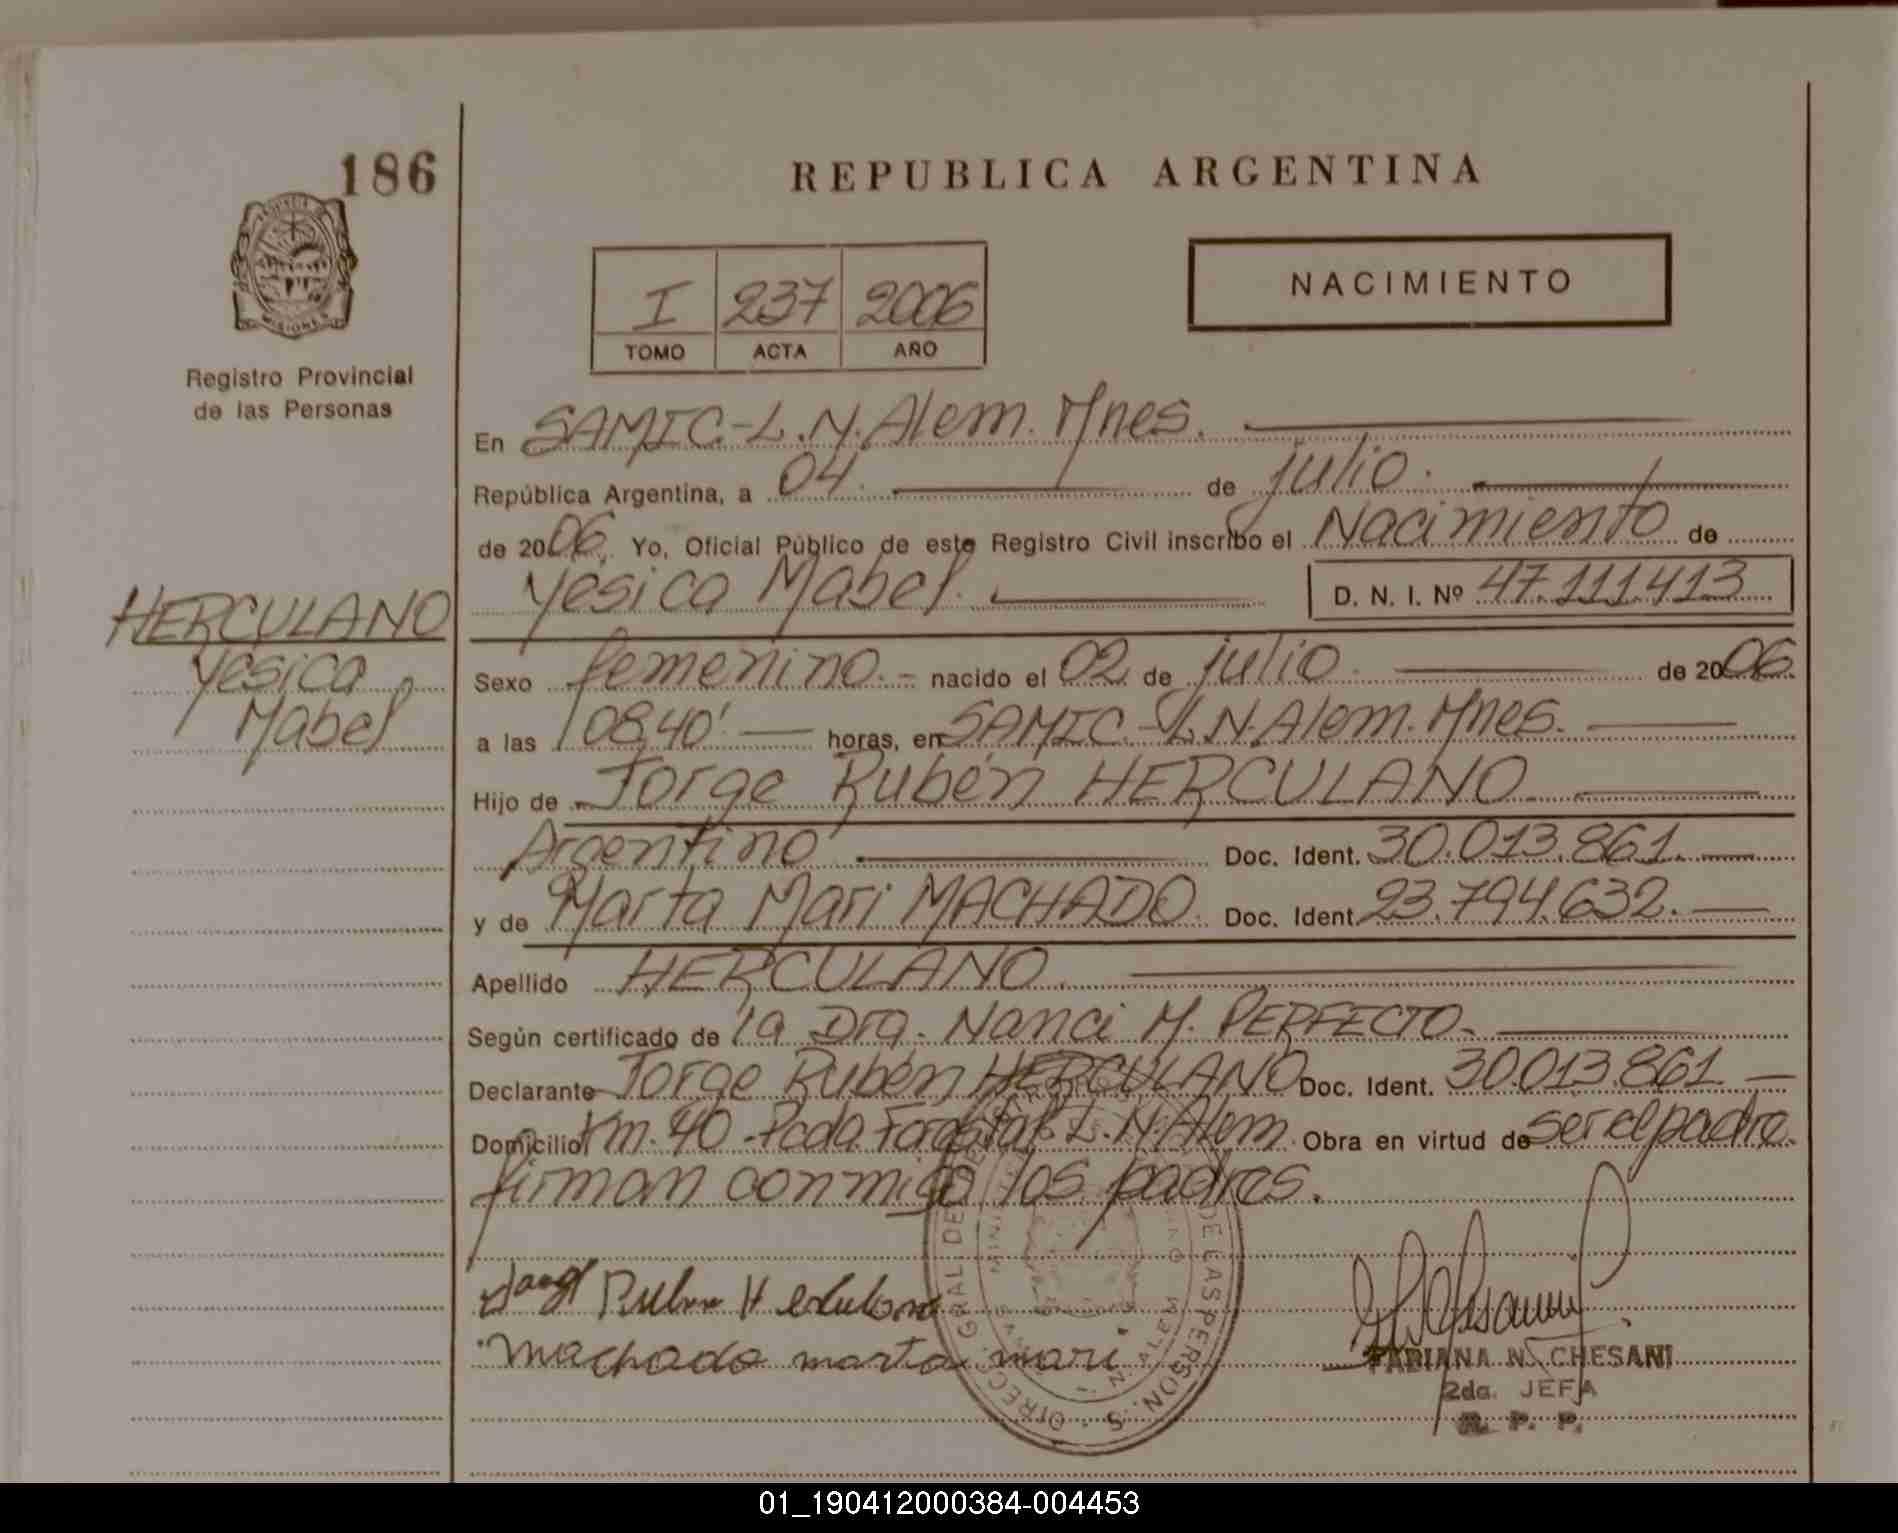 186
REPUBLICA ARGENTINA
MISIONES
Registro Provincial
de las Personas
I 237 2006
TOMO ACTA AÑO
NACIMIENTO
En SAMIC.-L.N.Alem. Mnes.
República Argentina, a 04. de julio.
de 2006. Yo, Oficial Público de este Registro Civil inscribo el Nacimiento de
Yésica Mabel. D. N. I. Nº 47.111.413
HERCULANO
Yesica
Mabel
Sexo femenino.- nacido el 02 de julio. de 2006.
a las 08,40'. horas, en SAMIC.-L.N.Alem. Mnes.
Hijo de Jorge Rubén HERCULANO
Argentino Doc. Ident. 30.013.861.
y de Marta Mari MACHADO. Doc. Ident. 23.794.632.
Apellido HERCULANO.
Según certificado de la Dra. Nanci M. PERFECTO.
Declarante Jorge Rubén HERCULANO Doc. Ident. 30.013.861.
Domicilio Km. 40 - Pcda. Forestal L.N.Alem. Obra en virtud de ser el padre.
firman conmigo los padres.
machado marta mari
FABIANA N. CHESANI
2da. JEFA
R. P. P.
01_190412000384-004453